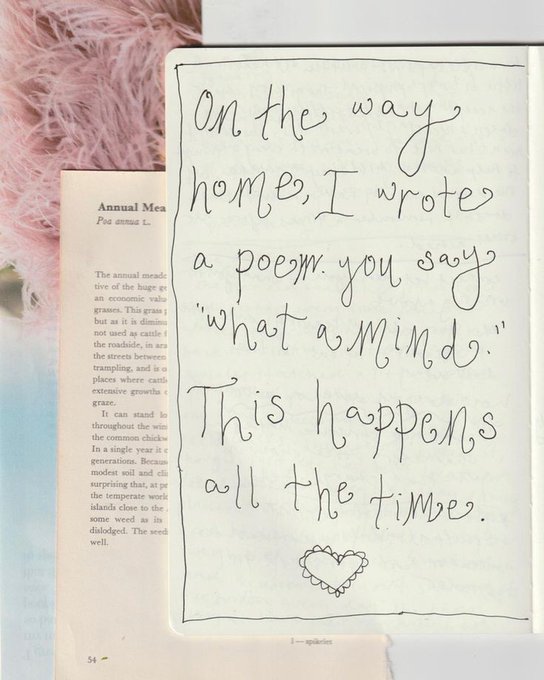 On the way
home, I wrote
a poem. you say
"what a mind."
This happens
all the time.
Annual Mea
Poa annua L.
The annual meado
tive of the huge ge
an economic valu
grasses. This grass p
but as it is dimin
not used as cattle f
the roadside, in ara
the streets between
trampling, and is o
places where cattl
extensive growths o
graze.
It can stand lo
throughout the win
the common chickw
In a single year it c
generations. Becaus
modest soil and cli
surprising that, at pr
the temperate worl
islands close to the
some weed as its
dislodged. The seed
well.
1 — spikelet
54